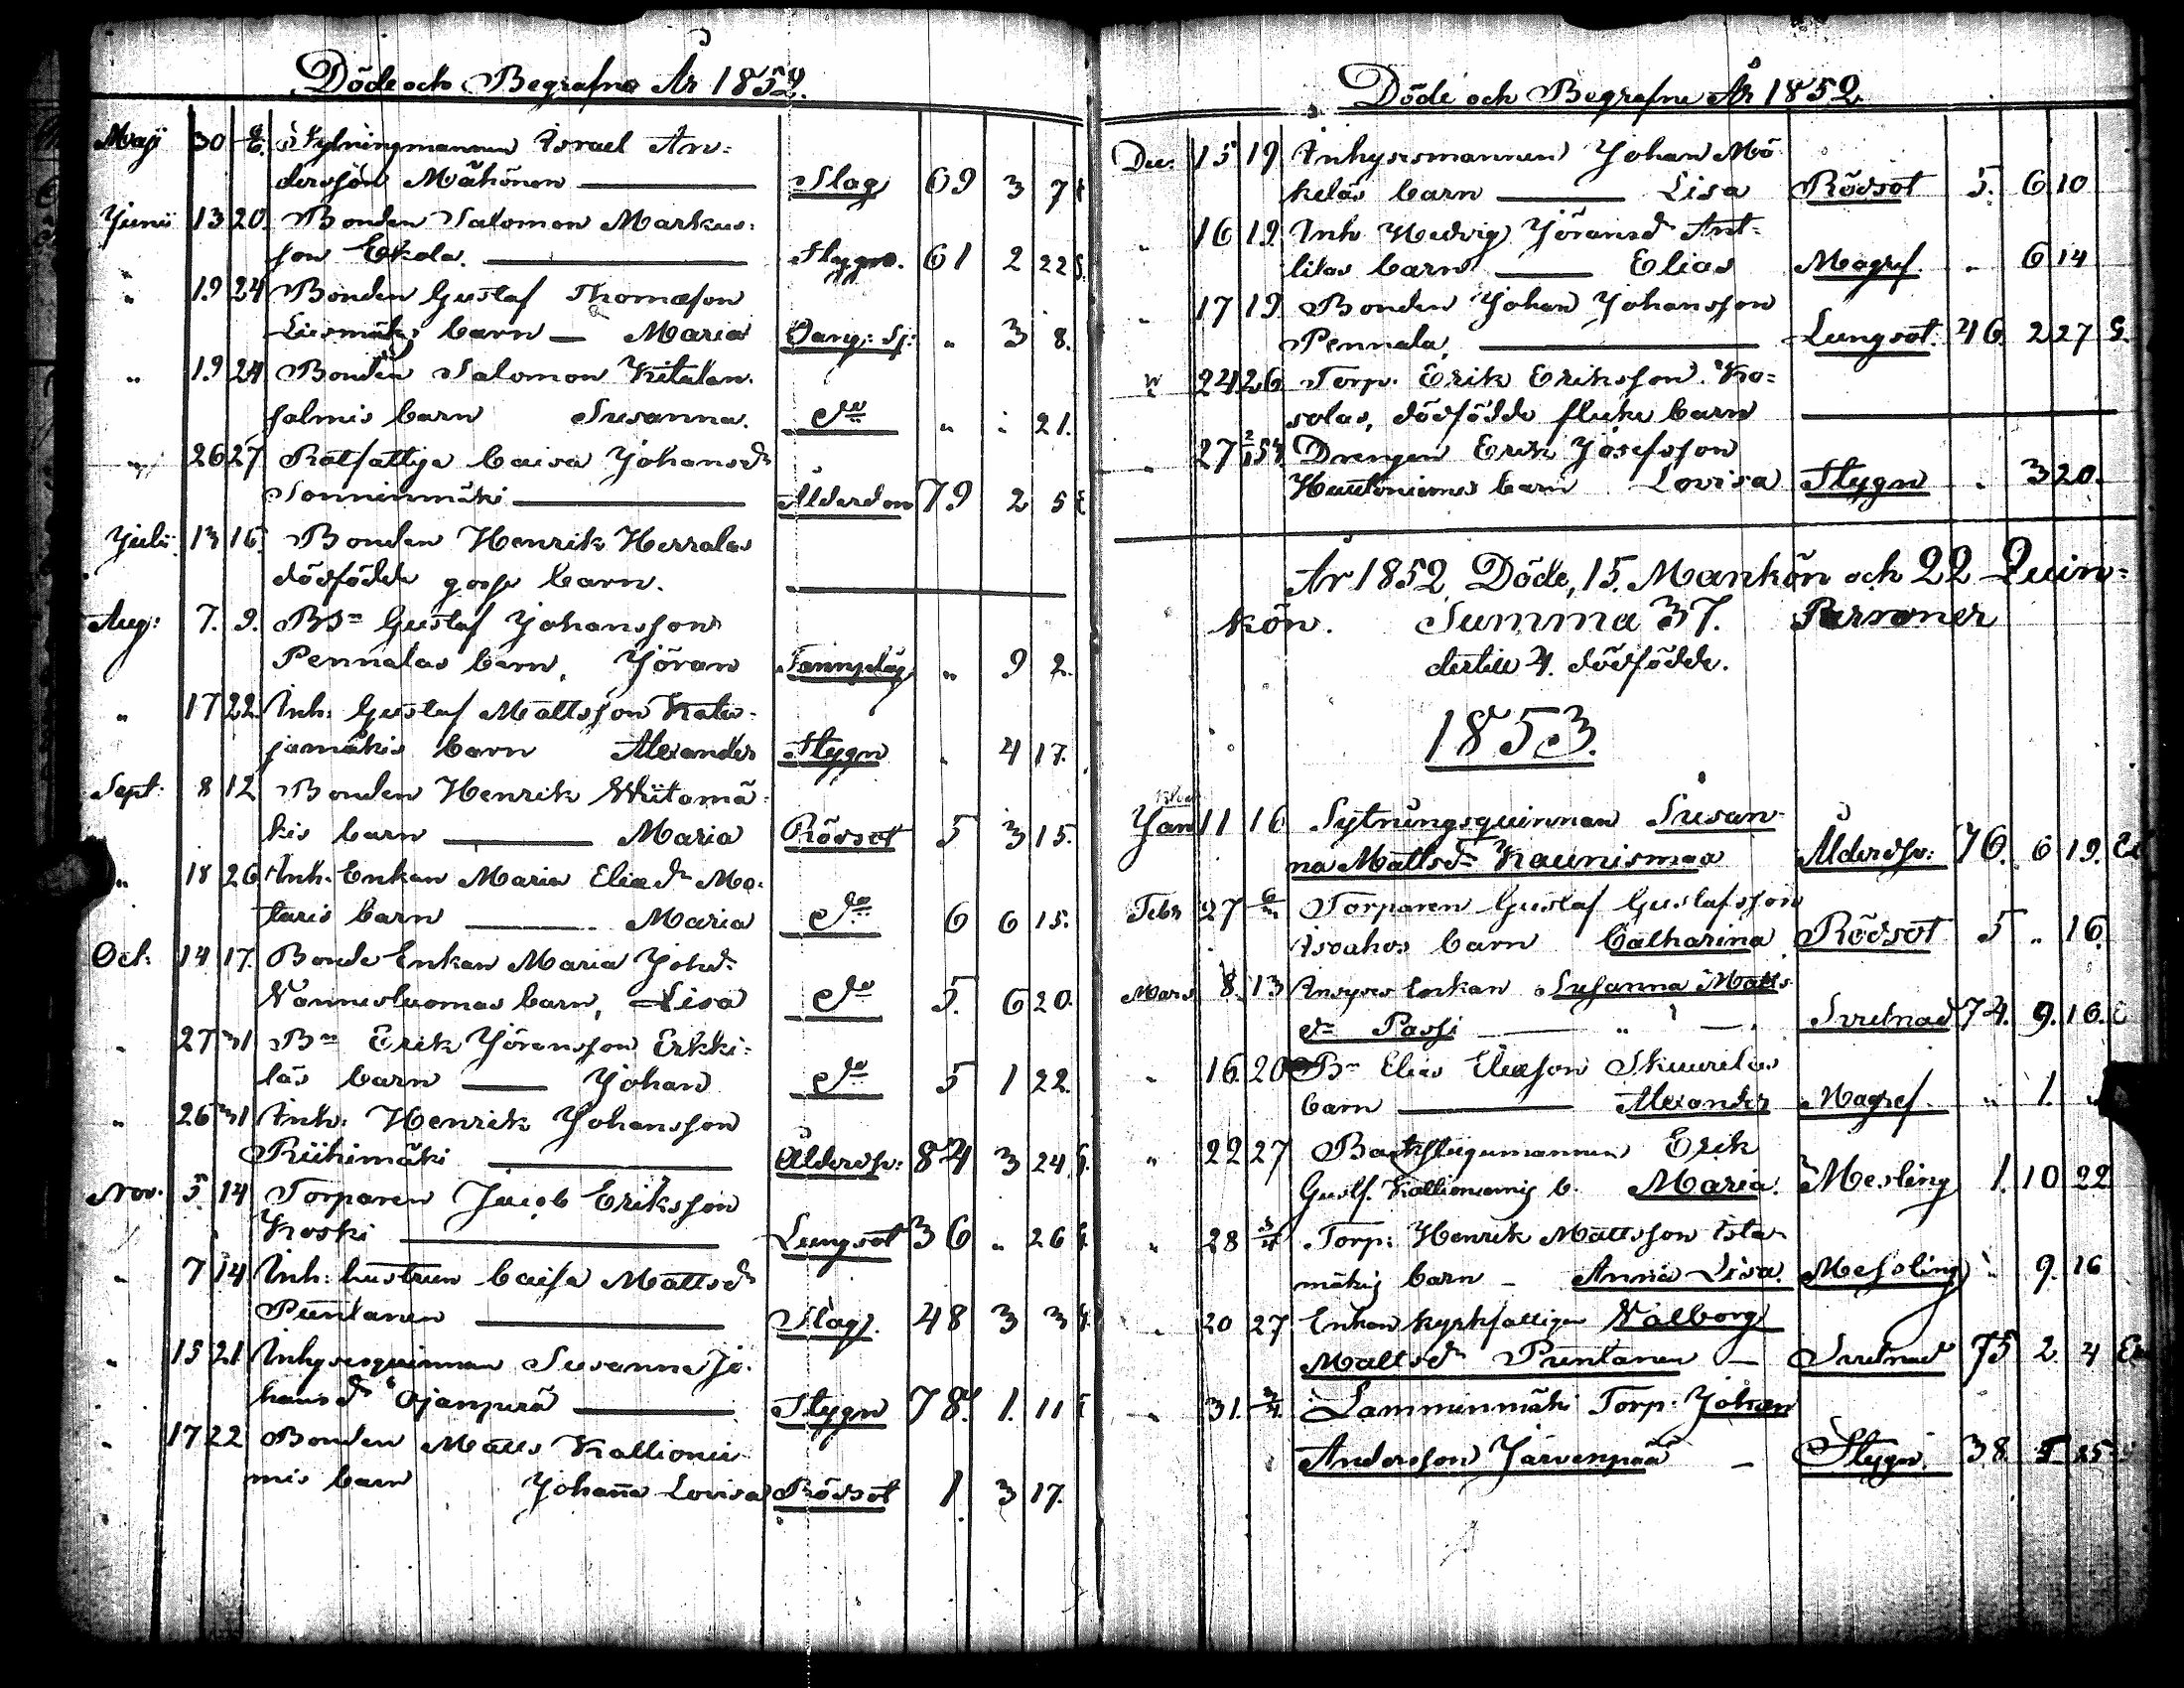 Döde och Begrafne År 1852.
Maji 30 Sytningmannen Israel An=
dersson Mäkönen Slag 69 3 7
Junii 13 20. Bonden Salomon Markus=
son Ekola. Stygn. 61 2 22
" 19 24 Bonden Gustaf Thomasson
Liesmäkis barn — Maria " 3 8.
" 19 24 Bonden Salomon Kitalan.
salmis barn Susanna. do " " 21.
" 26 27 Rotfattige Caisa Johansdr
Sonninmäki Ålderdom 79 2 5
Julii 13 16. Bonden Henrik Herralas
dödfödde gosse barn.
Aug: 7. 9. Bdsn Gustaf Johansson
Pennalas barn, Jöran Tannslag " 9 2.
" 17 22. Inh: Gustaf Mattsson Kata=
jamäkis barn Alexander Stygn " 4 17.
Sept. 8 12 Bonden Henrik Wiitamä=
kis barn — Maria Rödsot 5 3 15.
" 18 26 Inh. Enkan Maria Eliædr Ma=
taris barn — Maria do 6 6 15.
Oct: 14 17. Bonde Enkan Maria Johdr
Nannesluomas barn, Lisa do 5. 6 20.
" 27 31 Bn Erik Jöransson Erkki=
läs barn — Johan do 5 1 22.
" 26 31 Inh: Henrik Johansson
Riihimäki Ålderdr: 84 3 24
Nov. 5 14 Torparen Jacob Eriksson
Koski Lungsot 36 " 26
" 7 14 Inh: hustrun Caisa Mattsdr
Puntanen Slag. 48 3 3
" 15 21 Inhysesquinnan Susanna Jo=
hansdr Ojanperä Stygn 78. 1. 11
" 17 22 Bonden Matts Kallionie=
mis barn Johanna Lovisa Rödsot 1 3 17.
Döde och Begrafne År 1852.
Dec. 15 19 Inhysesmannen Johan Mä=
keläs barn — Lisa Rödsot 5. 6 10
" 16 19 Inh. Hedvig Jöransdr Ant=
tilas barn — Elias Magref. " 6 14
" 17 19 Bonden Johan Johansson
Pennala, Lungsot. 46. 2 27 G.
" 24 26 Torp. Erik Eriksson Ko=
solas, dödfödde flicke barn
" 27 Drengen Erik Josefsson
Huutoniemis barn Lovisa Stygn " 3 20.
År 1852 Döde, 15. Mankön och 22 Quin=
kön. Summa 37. Personer
dertill 4. dödfödde.
1853.
Jan 11 16 Sytnungsquinnan Susan=
na Mattsdr Kaunismaa Ålderdr: 76. 6 19.
Febr 27 Torparen Gustaf Gustafsson
Isoahos barn Catharina Rödsot 5 " 16.
Mars 8. 13 Inhyses Enkan Susanna Matts
dr Passi — " — Svetnad 74. 9. 16.
" 16. 20 Bn Elias Eliæson Skuurilas
barn — Alexander Magref. " 1.
" 22 27 Backstugumannen Erik
Gustfs. Kallioniemis b. Maria. Mesling 1. 10 22
" 28 3/4 Torp: Henrik Mattsson Ista=
mäkis barn — Anna Lisa. Messling " 9. 16
" 20 27 Enkan kyrkfattigen Walborg
Mattsdr Puntanen — Svetnad 75 2 4
" 31. 3/4 Lamminmäki Torp: Johan
Andersson Järvenpää — Stygn. 38. 5 25